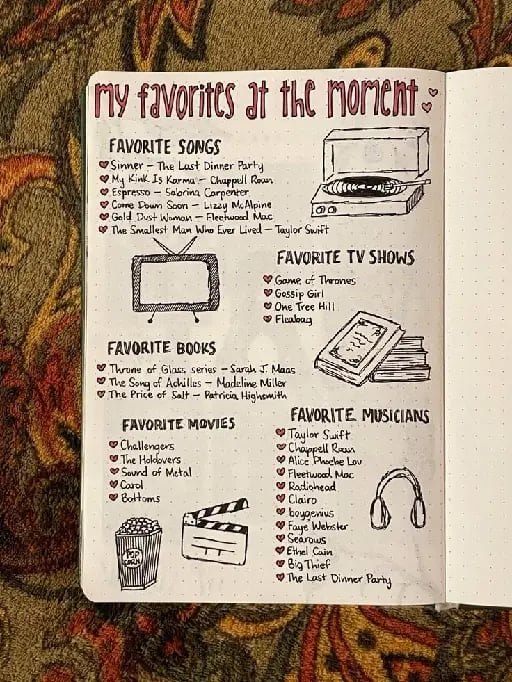 my favorites at the moment
FAVORITE SONGS
Sinner – The Last Dinner Party
My Kink Is Karma – Chappell Roan
Espresso – Sabrina Carpenter
Come Down Soon – Lizzy McAlpine
Gold Dust Woman – Fleetwood Mac
The Smallest Man Who Ever Lived – Taylor Swift
FAVORITE TV SHOWS
Game of Thrones
Gossip Girl
One Tree Hill
Fleabag
FAVORITE BOOKS
Throne of Glass series – Sarah J. Maas
The Song of Achilles – Madeline Miller
The Price of Salt – Patricia Highsmith
FAVORITE MOVIES
Challengers
The Holdovers
Sound of Metal
Carol
Bottoms
POP
CORN
FAVORITE MUSICIANS
Taylor Swift
Chappell Roan
Alice Phoebe Lou
Fleetwood Mac
Radiohead
Clairo
boygenius
Faye Webster
Searows
Ethel Cain
Big Thief
The Last Dinner Party